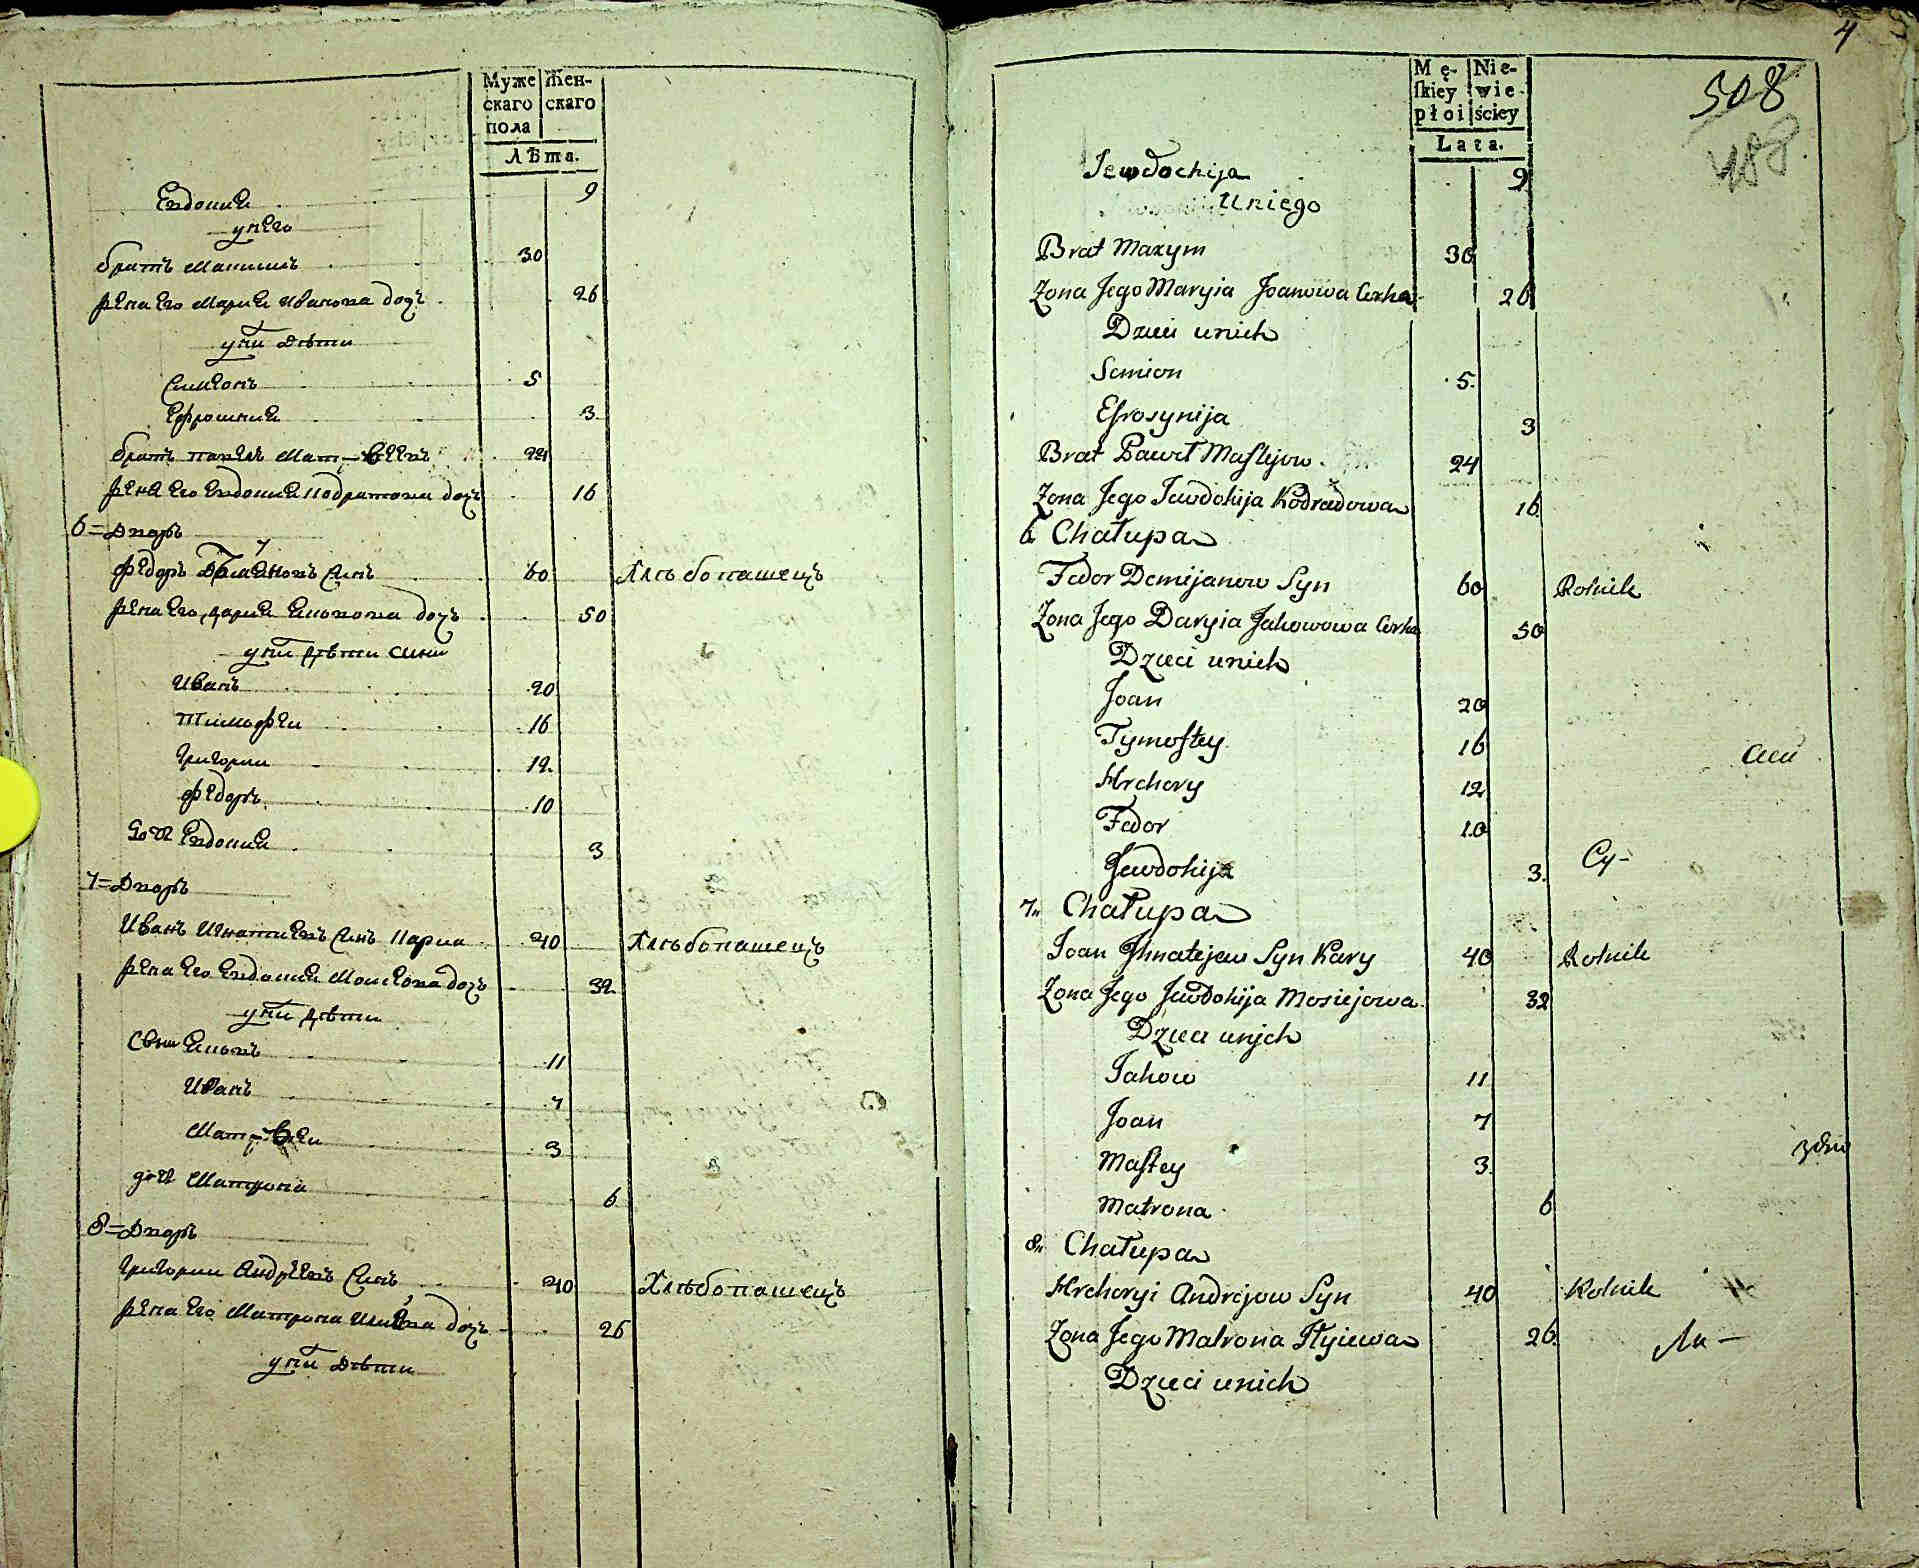 Муже Жен-
скаго скаго
пола
Лѣта.
Евдокия 9
у него
братъ Максимъ 30
жена его Мария Иванова дочь 26
у них дѣти
Симеонъ 5
Ефросиния 3
братъ Павелъ Матѣеевъ 24
жена его Евдокия Кодратова дочь 16
6=Дворъ
Федоръ Демяновъ синъ 60 Хлѣбопашецъ
жена его Дария Яковова дочь 50
у них дѣти сини
Иванъ 20
Тимофеи 16
Григории 12
Федоръ 10
дочь Евдокия 3
7=Дворъ
Иванъ Игнатиевъ синъ Кариа 40 Хлѣбопашецъ
жена его Евдокия Моисеова дочь 32
у них дѣти
Сыни Яковъ 11
Иванъ 7
Матѣеи 3
дочь Матрона 6
8=Дворъ
Григории Андрѣевъ синъ 40 Хлѣбопашецъ
жена его Матрона Илиева дочь 26
у них дѣти
4
508
488
Mę- Nie-
ſkiey wie
płoi ściey
Lata.
Jewdochija 9
Uniego
Brat Maxym 30
Zona Jego Maryia Joanowa Corka 26
Dzieci unich
Semion 5
Efrosynija 3
Brat Paweł Maftejow 24
Zona Jego Jewdohija Kodradowa 16
6 Chałupa
Fedor Demijanow Syn 60 Rolnik
Zona Jego Daryia Jakowowa Corka 50
Dzieci unich
Joan 20
Tymoftey 16
Hrehory 12
Fedor 10
Jewdohija 3
Су-
7" Chałupa
Joan Jhnatejew Syn Kary 40 Rolnik
Zona Jego Jewdohija Mosiejowa 32
Dzieci unjch
Jakow 11
Joan 7
Maftey 3
Matrona 6
8" Chałupa
Hrehoryi Andrejow Syn 40 Rolnik
Zona Jego Matrona Jłyiewa 26
Dzieci unich